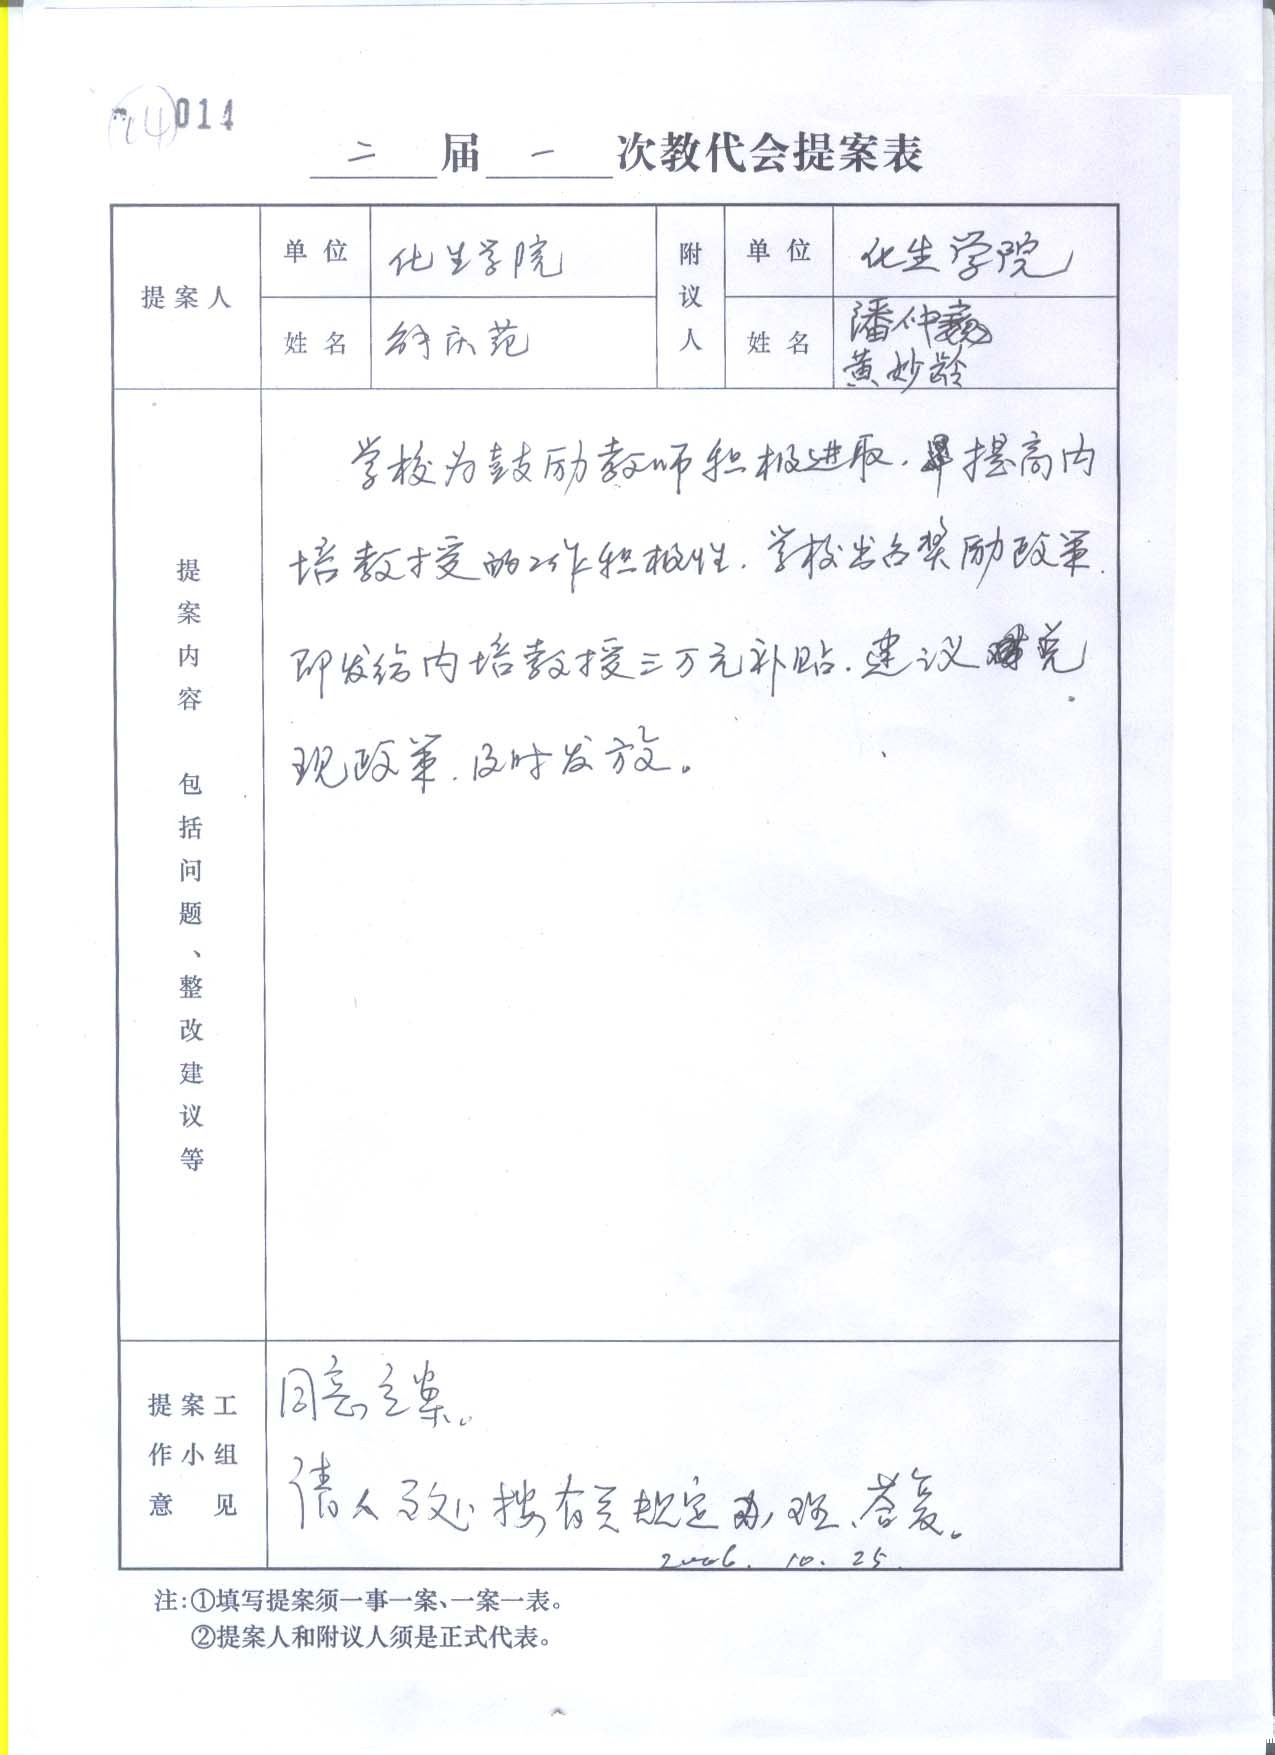 14 014
二 届 一 次教代会提案表
提案人 单位 化生学院 附议人 单位 化生学院
姓名 舒庆范 姓名 潘仲巍
黄妙龄
提案内容 包括问题、整改建议等
学校为鼓励教师积极进取，提高内
培教授的工作积极性，学校出台奖励政策，
即发给内培教授三万元补贴，建议兑
现政策，及时发放。
提案工作小组意见
同意立案。
请人事处按有关规定办理、答复。
2006.10.25.
注：①填写提案须一事一案、一案一表。
②提案人和附议人须是正式代表。